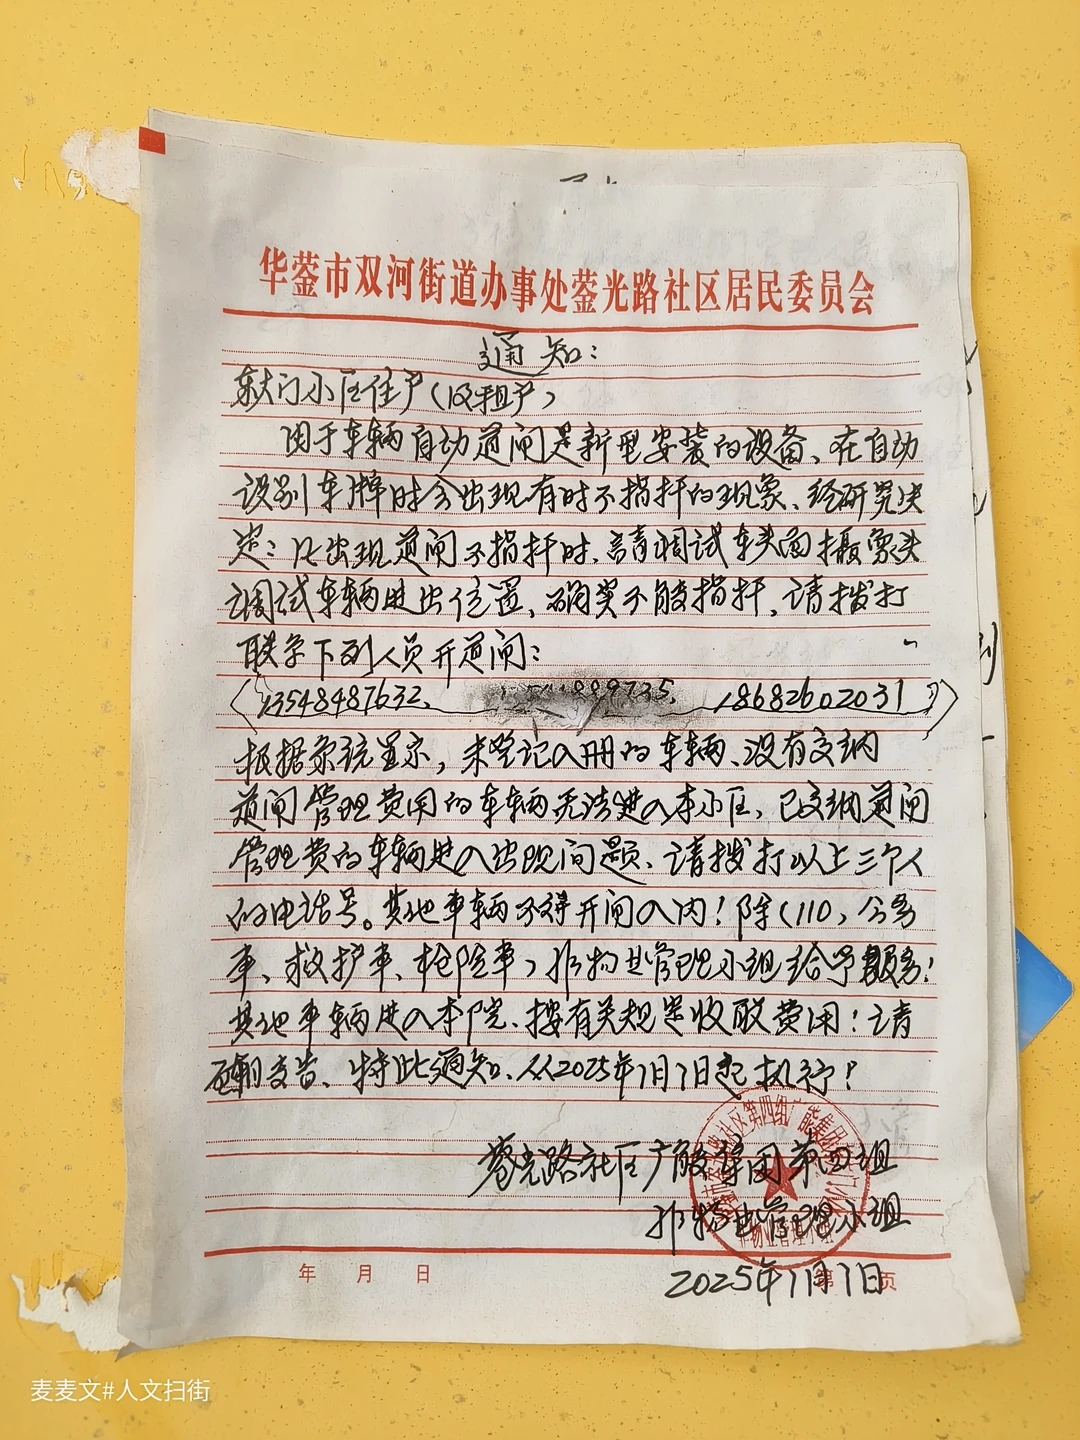 华蓥市双河街道办事处蓥光路社区居民委员会
通知:
东大门小区住户(及租户)
由于车辆自动道闸是新型安装的设备、在自动
识别车牌时会出现有时不指杆的现象、经研究决
定:凡出现道闸不指杆时、请调试车头面摄象头
调试车辆进出位置、确实不能指杆、请拨打
联系下列人员开道闸:
(13548487632、 899735、 18682602031)
根据系统显示,未登记入册的车辆、没有交纳
道闸管理费用的车辆无法进入本小区、已交纳道闸
管理费的车辆进入出现问题、请拨打以上三个人
的电话号。其他车辆不得开闸入内!除(110,公务
车、救护车、抢险车)非物业管理小组给予服务!
其他车辆进入本院、按有关规定收取费用!请
相互转告、特此通知、从2025年1月1日起执行!
蓥光路社区广能集团第四组
非物业管理小组
2025年1月1日
年 月 日 第 页
麦麦文#人文扫街